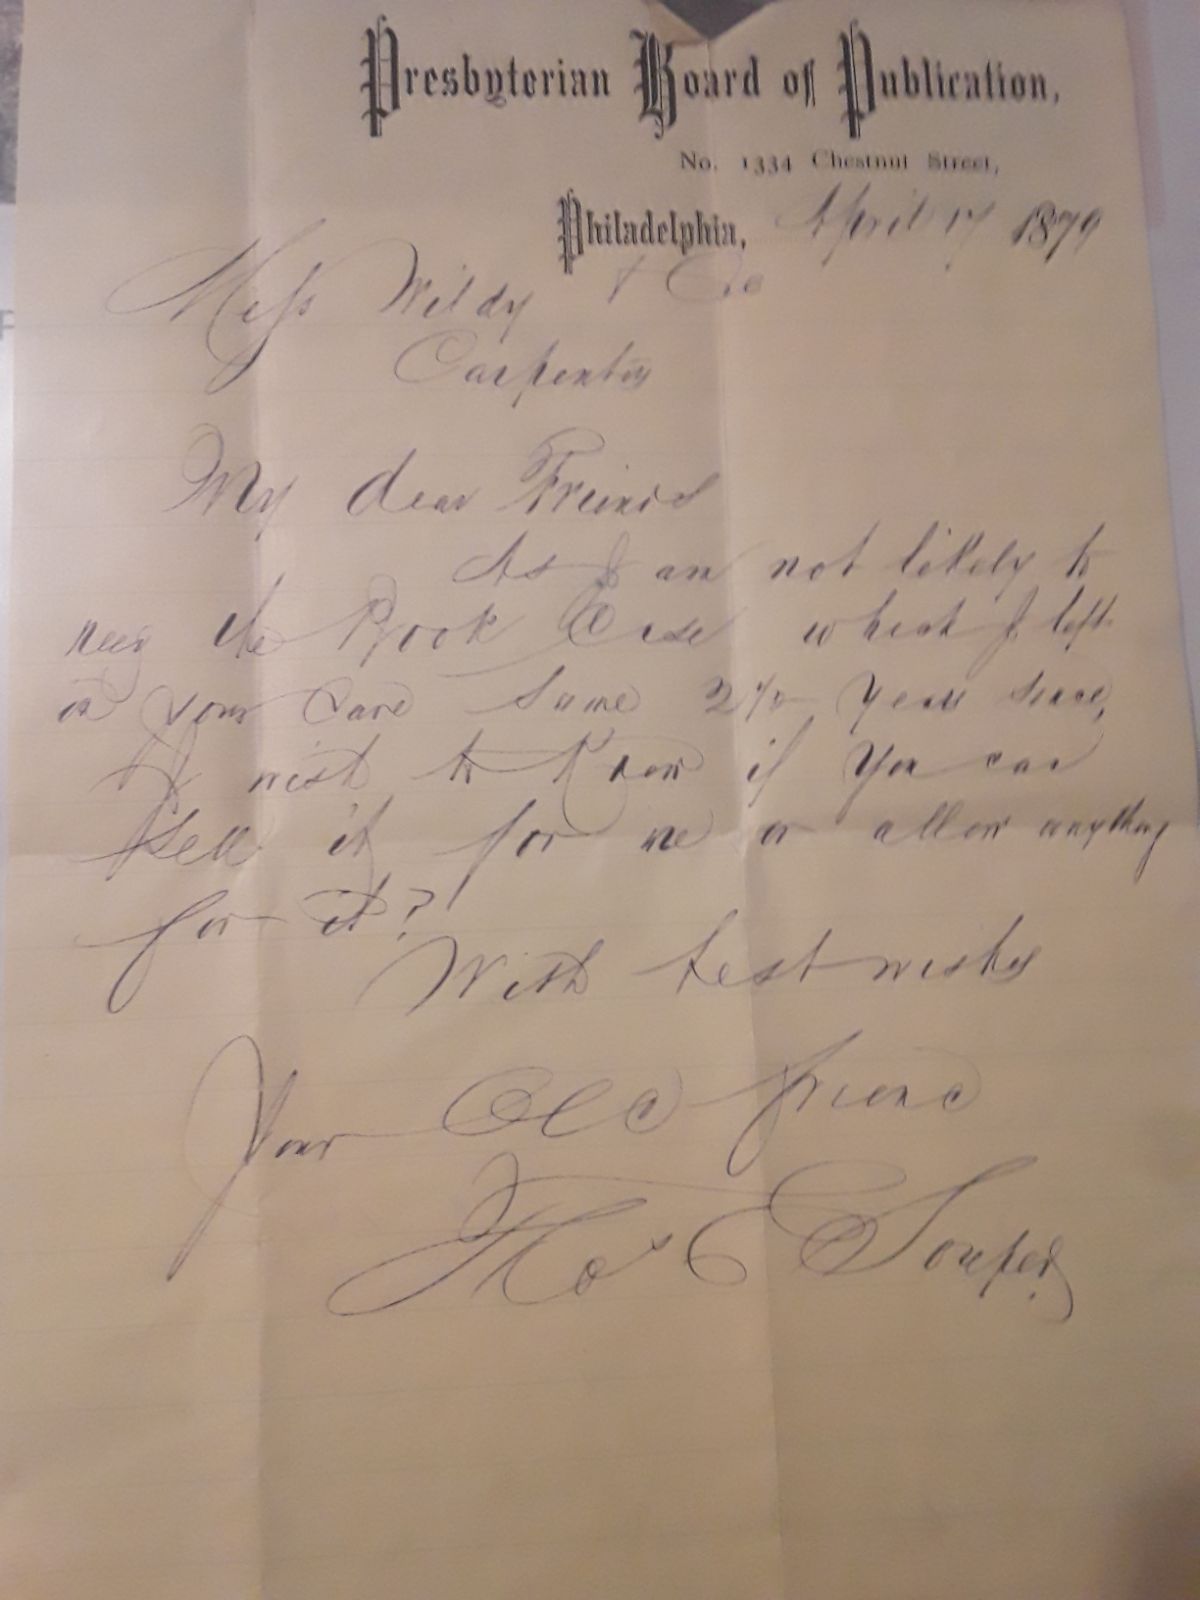 Presbyterian Board of Publication,
No. 1334 Chestnut Street,
Philadelphia, April 17 1879
Mess Wildy & Co
Carpenters
My dear Friends
As I am not likely to
need the Book Case which I left
in your Care some 2½ years since,
I wish to Know if you can
Sell it for me or allow anything
for it?
With best wishes
Your Old friend
Thos E Souper